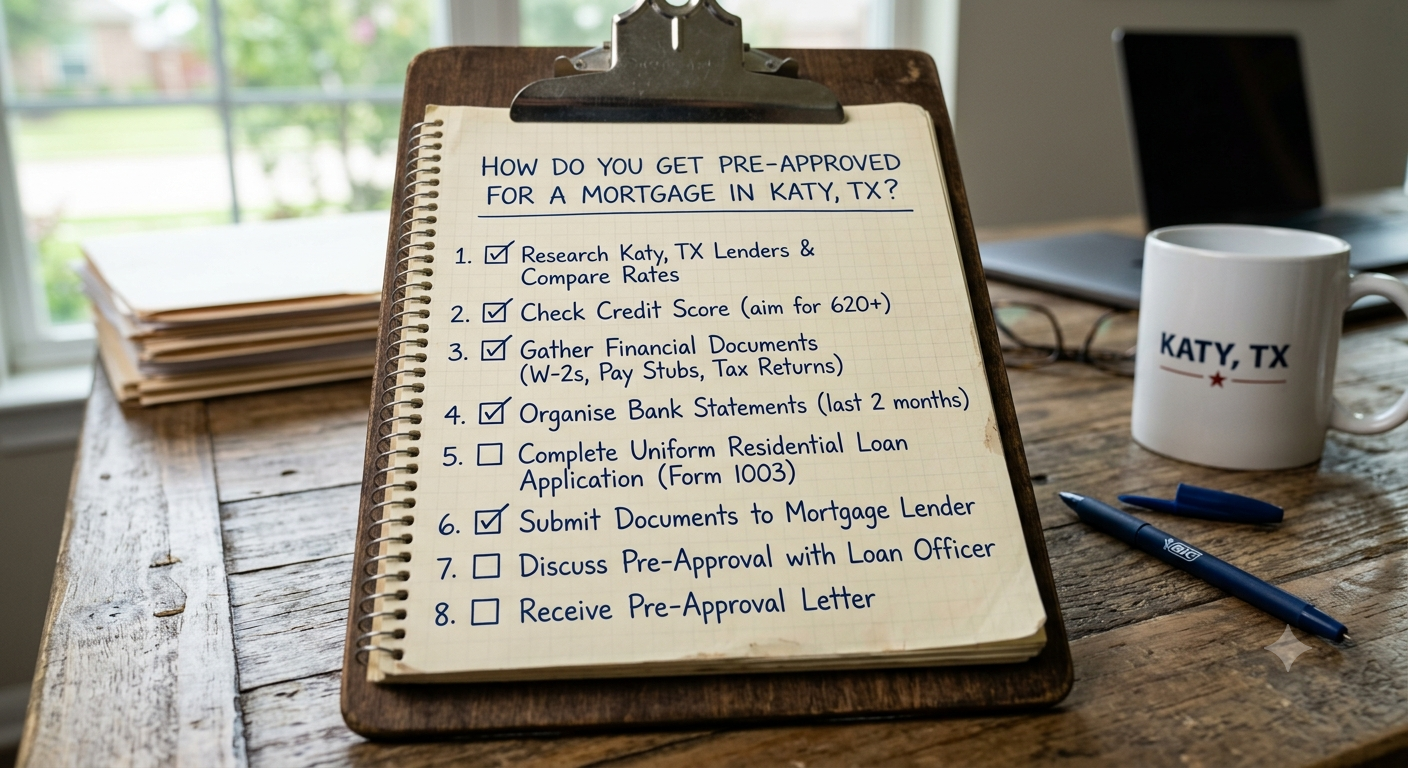 HOW DO YOU GET PRE-APPROVED
FOR A MORTGAGE IN KATY, TX?
1. ☑ Research Katy, TX Lenders &
Compare Rates
2. ☑ Check Credit Score (aim for 620+)
3. ☑ Gather Financial Documents
(W-2s, Pay Stubs, Tax Returns)
4. ☑ Organise Bank Statements (last 2 months)
5. ☐ Complete Uniform Residential Loan
Application (Form 1003)
6. ☑ Submit Documents to Mortgage Lender
7. ☐ Discuss Pre-Approval with Loan Officer
8. ☐ Receive Pre-Approval Letter
KATY, TX
BIC